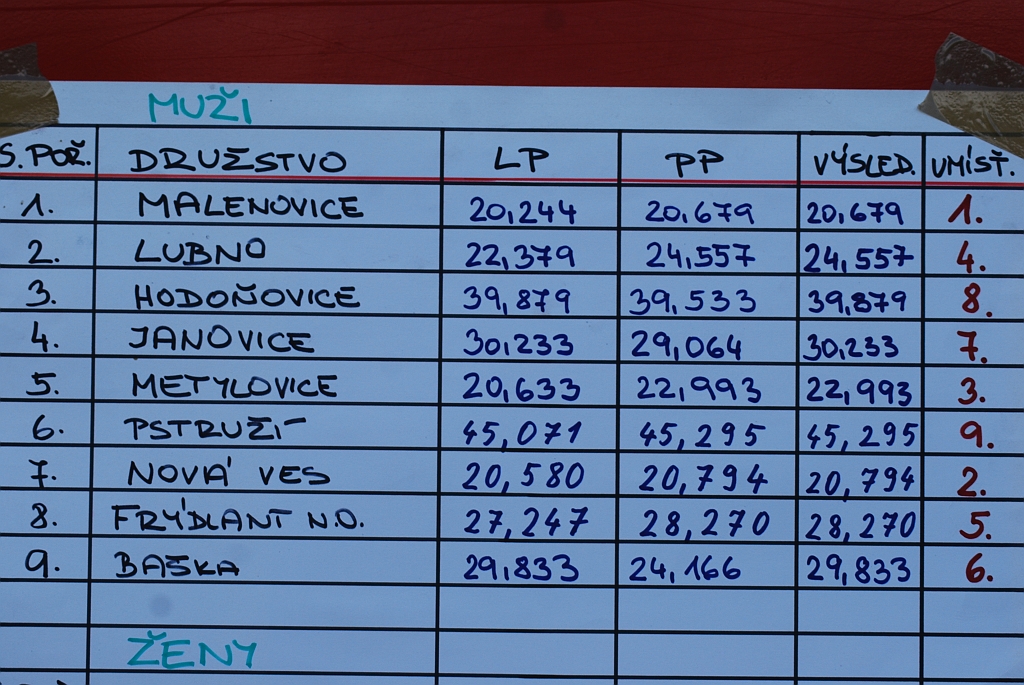 MUŽI
S. POŘ. DRUŽSTVO LP PP VÝSLED. UMÍSŤ.
1. MALENOVICE 20,244 20,679 20,679 1.
2. LUBNO 22,379 24,557 24,557 4.
3. HODOŇOVICE 39,879 39,533 39,879 8.
4. JANOVICE 30,233 29,064 30,233 7.
5. METYLOVICE 20,633 22,993 22,993 3.
6. PSTRUŽÍ 45,071 45,295 45,295 9.
7. NOVÁ VES 20,580 20,794 20,794 2.
8. FRÝDLANT N.O. 27,247 28,270 28,270 5.
9. BAŠKA 29,833 24,166 29,833 6.
ŽENY